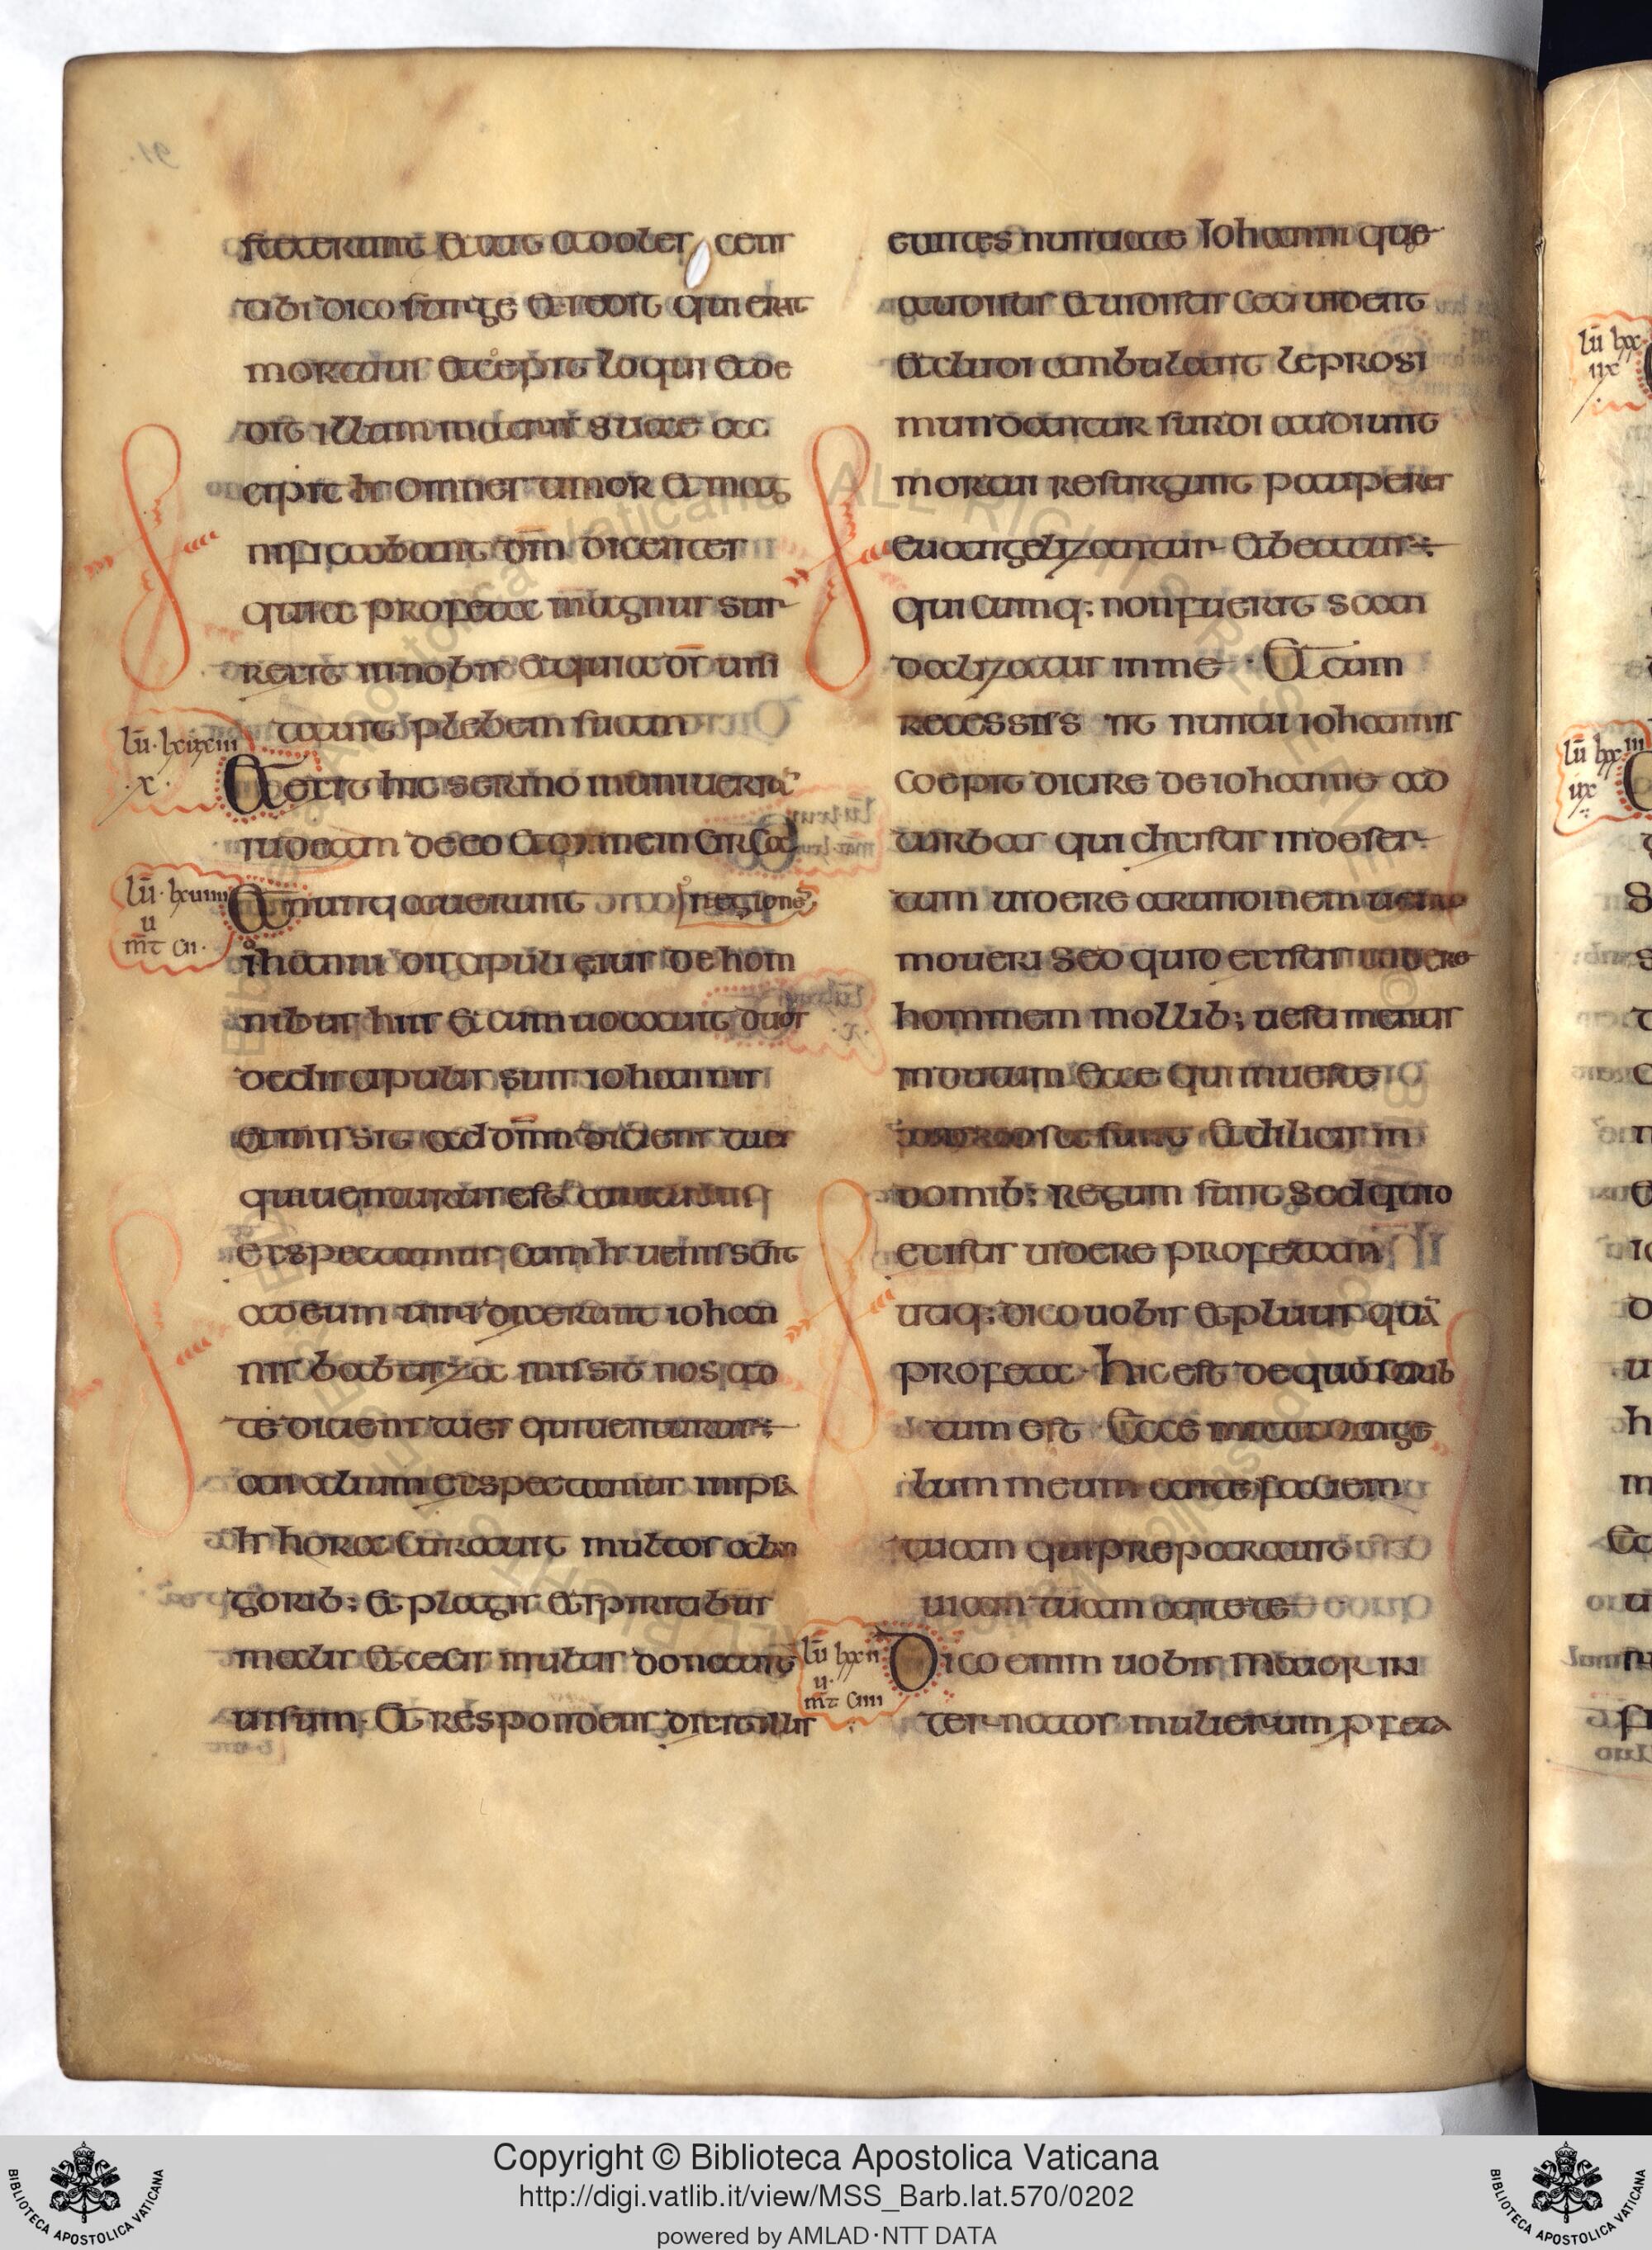 steterunt et ait adoles cens
tibi dico surge et resedit qui erat
mortuus et cepit loqui et de
dit illum matri suae acc
eipit h omnes timor et mag
nificabant dm̄ dicentes
quia profeta magnus sur
rexit in nobis et quia ds̄ uisi
tauit plebem suam
lū lxuiii
x
Et exit hic sermo in uniuersa
iudeam de eo et omnem circa
regionē
lū lxuiiii
u
mt cii
Et nuntiauerunt
iohanni discipuli eius de hom
nibus his et cum uocauit duos
dediscipulis suis iohannis
et missit ad dnm̄ dicens tu es
qui uenturus est
expectamus cum h uenissent
ad eum uiri dixerunt iohan
nis babtiza missit nos ad
te dicens tu es qui uenturus ÷
an alium expectamus in ipsa
h hora curauit multos alan
gorib; et plagis et spiritibus
malis et cecis multis donauit
uisum et respondens dixit illis
euntes nuntiate Iohanni que
audistis et uidistis ceci uident
et cludi ambulant leprosi
mundantur surdi audiunt
mortui resurgunt pauperes
euangelizantur et beatus ÷
qui cumq; non fuerit scan
dalizatus in me · Et cum
recessissnt nuntii iohannis
coepit dicire de iohanne ad
turbas qui existis in deser
tum uidere arundinem uento
moueri Sed quid existis uidere
hominem mollib; uestimentis
indutum Ecce qui in ueste
sunt et diliciis in
domib; regum sunt Sed quid
existis uidere profetam
utiq; dico uobis et plus quā
profeta · hic est de quo scrib
tum est · Ecce mitto ange
lum meum ante faciem
tuam qui preparauit
uiam tuam ante te
lū lxxii
u
mt ciiii
Dico enim uobis maior in
ter natos mulierum pfeta
Copyright © Biblioteca Apostolica Vaticana
http://digi.vatlib.it/view/MSS_Barb.lat.570/0202
powered by AMLAD·NTT DATA
BIBLIOTECA APOSTOLICA VATICANA
BIBLIOTECA APOSTOLICA VATICANA